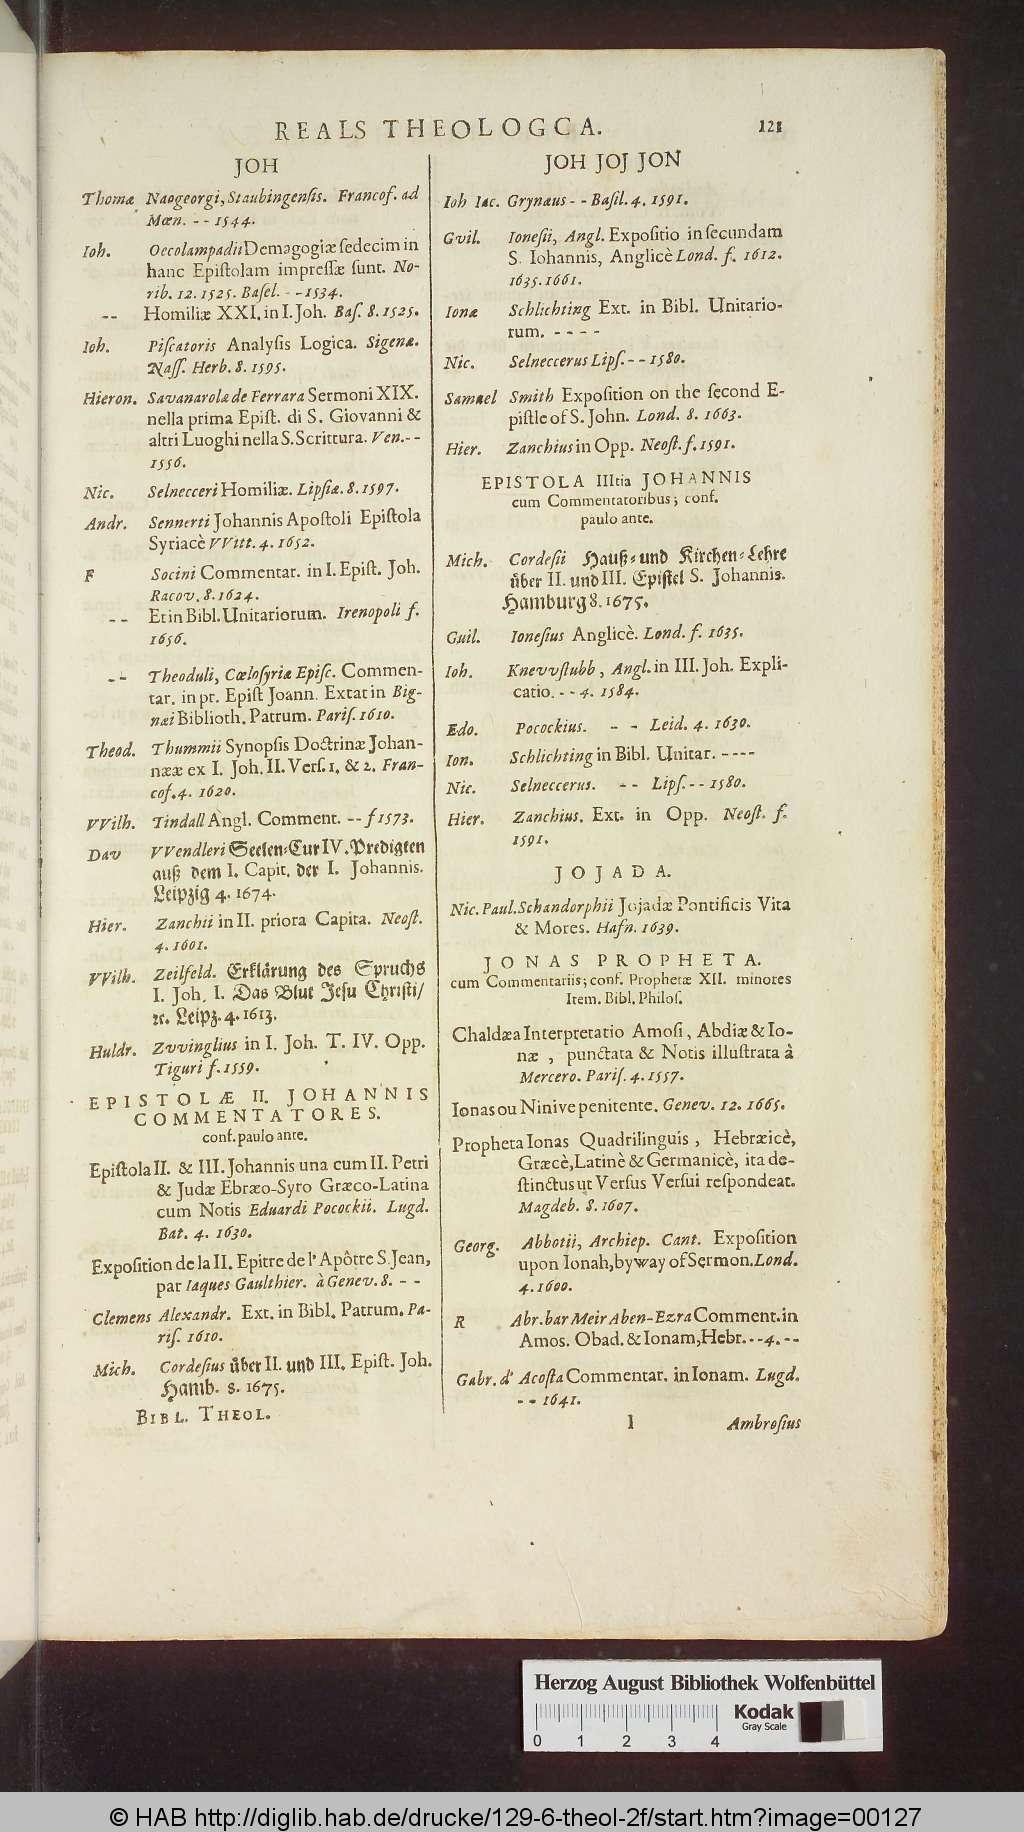 REALS THEOLOGCA. 121
JOH
Thomæ Naogeorgi, Staubingensis. Francof. ad
Mœn. -- 1544.
Ioh. OecolampadiiDemagogiæ sedecim in
hanc Epistolam impressæ sunt. No-
rib. 12. 1525. Basel. -- 1534.
-- Homiliæ XXI. in I. Joh. Bas. 8. 1525.
Ioh. Piscatoris Analysis Logica. Sigenæ.
Nass. Herb. 8. 1595.
Hieron. Savanarolæ de Ferrara Sermoni XIX.
nella prima Epist. di S. Giovanni &
altri Luoghi nella S. Scrittura. Ven.--
1556.
Nic. Selnecceri Homiliæ. Lipsiæ. 8. 1597.
Andr. Sennerti Johannis Apostoli Epistola
Syriacè VVitt. 4. 1652.
F Socini Commentar. in I. Epist. Joh.
Racov. 8. 1624.
-- Et in Bibl. Unitariorum. Irenopoli f.
1656.
-- Theoduli, Cœlosyriæ Episc. Commen-
tar. in pr. Epist Joann. Extat in Big-
næi Biblioth. Patrum. Paris. 1610.
Theod. Thummii Synopsis Doctrinæ Johan-
nææ ex I. Joh. II. Vers. 1. & 2. Fran-
cof. 4. 1620.
VVilh. Tindall Angl. Comment. -- f 1573.
Dav VVendleri Seelen-Cur IV. Predigten
auß dem I. Capit. der I. Johannis.
Leipzig 4. 1674.
Hier. Zanchii in II. priora Capita. Neost.
4. 1601.
VVilh. Zeilfeld. Erklärung des Spruchs
I. Joh. I. Das Blut Jesu Christi/
ꝛc. Leipz. 4. 1613.
Huldr. Zvvinglius in I. Joh. T. IV. Opp.
Tiguri f. 1559.
EPISTOLÆ II. JOHANNIS
COMMENTATORES.
conf. paulo ante.
Epistola II. & III. Johannis una cum II. Petri
& Judæ Ebræo-Syro Græco-Latina
cum Notis Eduardi Pocockii. Lugd.
Bat. 4. 1630.
Exposition de la II. Epitre de l' Apôtre S. Jean,
par Iaques Gaulthier. à Genev. 8. --
Clemens Alexandr. Ext. in Bibl. Patrum. Pa-
ris. 1610.
Mich. Cordesius über II. und III. Epist. Joh.
Hamb. 8. 1675.
BIBL. THEOL.
JOH JOJ JON
Ioh Iac. Grynæus -- Basil. 4. 1591.
Gvil. Ionesii, Angl. Expositio in secundam
S. Iohannis, Anglicè Lond. f. 1612.
1635. 1661.
Ionæ Schlichting Ext. in Bibl. Unitario-
rum. ----
Nic. Selneccerus Lips. -- 1580.
Samuel Smith Exposition on the second E-
pistle of S. John. Lond. 8. 1663.
Hier. Zanchius in Opp. Neost. f. 1591.
EPISTOLA IIItia JOHANNIS
cum Commentatoribus; conf.
paulo ante.
Mich. Cordesii Hauß- und Kirchen-Lehre
über II. und III. Epistel S. Johannis.
Hamburg 8. 1675.
Guil. Ionesius Anglicè. Lond. f. 1635.
Ioh. Knevvstubb, Angl. in III. Joh. Expli-
catio. -- 4. 1584.
Edo. Pocockius. -- Leid. 4. 1630.
Ion. Schlichting in Bibl. Unitar. ----
Nic. Selneccerus. -- Lips. -- 1580.
Hier. Zanchius. Ext. in Opp. Neost. f.
1591.
JOJADA.
Nic. Paul. Schandorphii Jojadæ Pontificis Vita
& Mores. Hafn. 1639.
JONAS PROPHETA.
cum Commentariis; conf. Prophetæ XII. minores
Item. Bibl. Philos.
Chaldæa Interpretatio Amosi, Abdiæ & Io-
næ, punctata & Notis illustrata à
Mercero. Paris. 4. 1557.
Ionas ou Ninive penitente. Genev. 12. 1665.
Propheta Ionas Quadrilinguis, Hebræicè,
Græcè, Latinè & Germanicè, ita de-
stinctus ut Versus Versui respondeat.
Magdeb. 8. 1607.
Georg. Abbotii, Archiep. Cant. Exposition
upon Ionah, by way of Sermon. Lond.
4. 1600.
R Abr. bar Meir Aben-Ezra Comment. in
Amos. Obad. & Ionam, Hebr. -- 4. --
Gabr. d' Acosta Commentar. in Ionam. Lugd.
-- 1641.
l Ambrosius
Herzog August Bibliothek Wolfenbüttel
0 1 2 3 4
Kodak
Gray Scale
© HAB http://diglib.hab.de/drucke/129-6-theol-2f/start.htm?image=00127